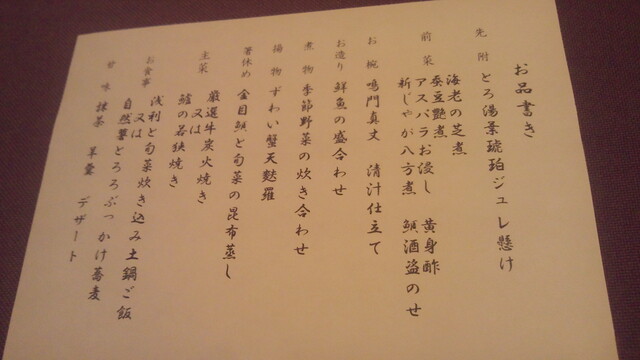 お品書き
先附 とろ湯葉琥珀ジュレ懸け
前菜 海老の芝煮
蚕豆艶煮
アスパラお浸し 黄身酢
新じゃが八方煮 鯛酒盗のせ
お椀 鳴門真丈 清汁仕立て
お造り 鮮魚の盛合わせ
煮物 季節野菜の炊き合わせ
揚物 ずわい蟹天麩羅
箸休め 金目鯛と旬菜の昆布蒸し
主菜 厳選牛炭火焼き
又は
鱸の若狭焼き
お食事 浅利と旬菜炊き込み土鍋ご飯
又は
自然薯とろろぶっかけ蕎麦
甘味 抹茶 羊羹 デザート